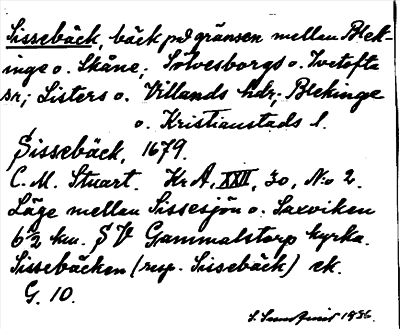 Sissebäck, bäck på gränsen mellan Blek-
inge o. Skåne; Sölvesborgs o. Ivetofta
sn; Listers o. Villands hdr; Blekinge
o. Kristianstads l.
Sissebäck, 1679.
C. M. Stuart. Kr. A, XXII, 30, N:o 2.
Läge mellan Sissesjön o. Saxviken
6½ km. SV Gammalstorp kyrka.
Sissebäcken (resp. Sissebäck) ek.
G. 10.
1936.